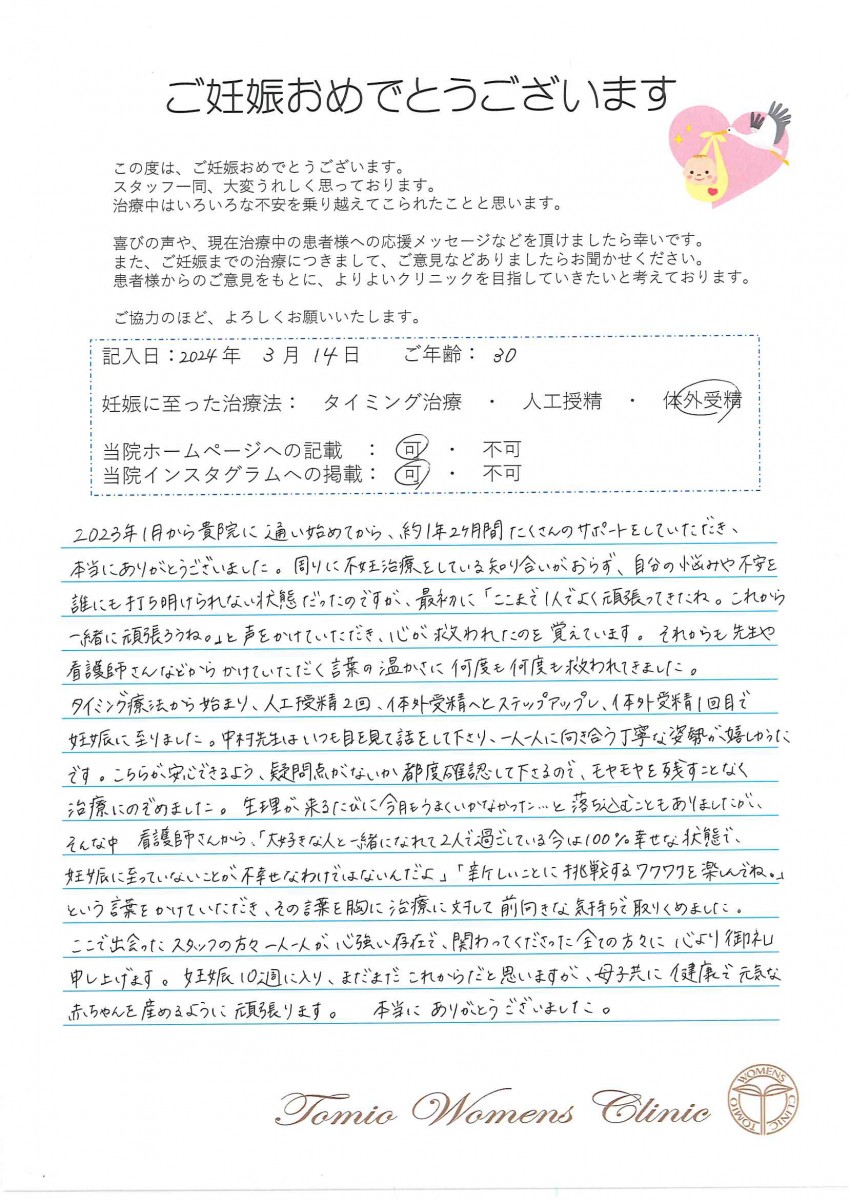 ご妊娠おめでとうございます
この度は、ご妊娠おめでとうございます。
スタッフ一同、大変うれしく思っております。
治療中はいろいろな不安を乗り越えてこられたことと思います。
喜びの声や、現在治療中の患者様への応援メッセージなどを頂けましたら幸いです。
また、ご妊娠までの治療につきまして、ご意見などありましたらお聞かせください。
患者様からのご意見をもとに、よりよいクリニックを目指していきたいと考えております。
ご協力のほど、よろしくお願いいたします。
記入日：2024年 3月14日 ご年齢：30
妊娠に至った治療法： タイミング治療 ・ 人工授精 ・ 体外受精
当院ホームページへの記載 ： 可 ・ 不可
当院インスタグラムへの掲載： 可 ・ 不可
2023年1月から貴院に通い始めてから、約1年2ヶ月間たくさんのサポートをしていただき、
本当にありがとうございました。周りに不妊治療をしている知り合いがおらず、自分の悩みや不安を
誰にも打ち明けられない状態だったのですが、最初に「ここまで1人でよく頑張ってきたね。これから
一緒に頑張ろうね。」と声をかけていただき、心が救われたのを覚えています。それからも先生や
看護師さんなどからかけていただく言葉の温かさに何度も何度も救われてきました。
タイミング療法から始まり、人工授精2回、体外受精へとステップアップし、体外受精1回目で
妊娠に至りました。中村先生はいつも目を見て話をして下さり、一人一人に向き合う丁寧な姿勢が嬉しかった
です。こちらが安心できるよう、疑問点がないか都度確認して下さるので、モヤモヤを残すことなく
治療にのぞめました。生理が来るたびに今月もうまくいかなかった…と落ち込むこともありましたが、
そんな中 看護師さんから、「大好きな人と一緒になれて2人で過ごしている今は100％幸せな状態で、
妊娠に至っていないことが不幸せなわけではないんだよ」「新しいことに挑戦するワクワクを楽しんでね。」
という言葉をかけていただき、その言葉を胸に治療に対して前向きな気持ちで取りくめました。
ここで出会ったスタッフの方々一人一人が、心強い存在で、関わってくださった全ての方々に心より御礼
申し上げます。妊娠10週に入り、まだまだこれからだと思いますが、母子共に健康で元気な
赤ちゃんを産めるように頑張ります。 本当にありがとうございました。
Tomio Womens Clinic
TOMIO WOMENS CLINIC